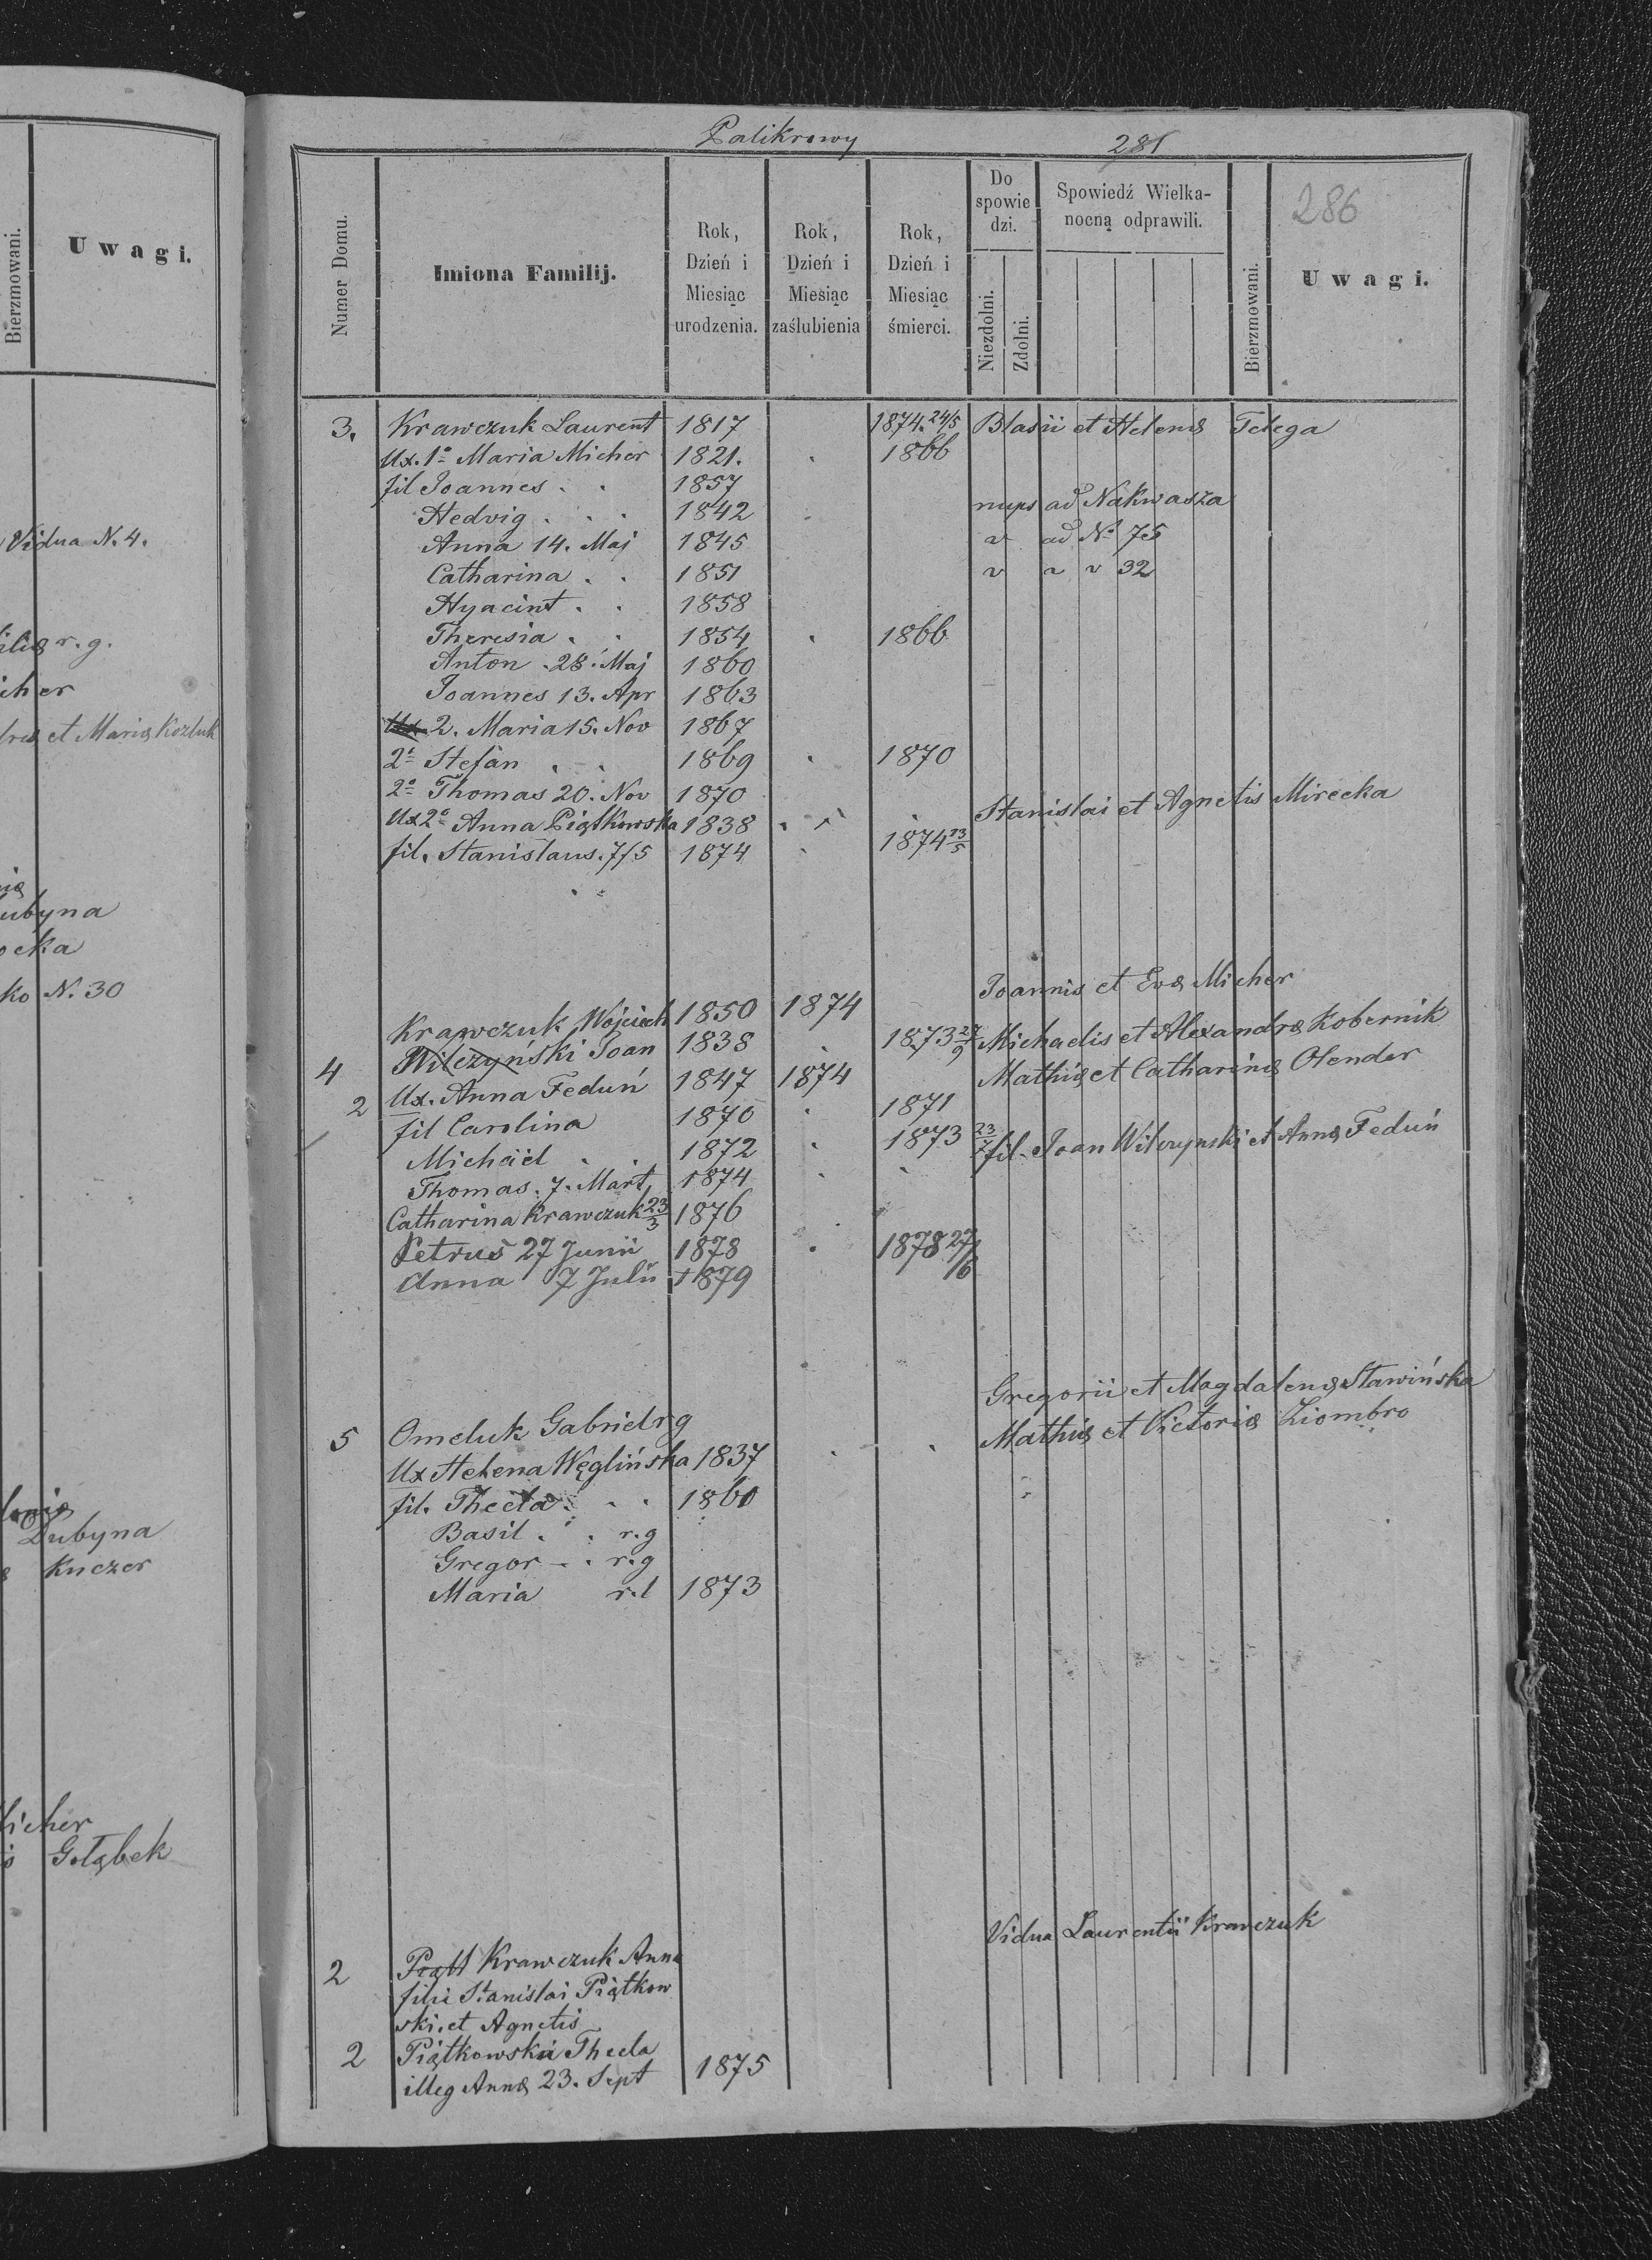 Bierzmowani.
U w a g i.
Vidua N. 4.
r. g.
et Mariæ Kozluk
N. 30
Dubyna
Kuczer
Gołąbek
Palikrowy
281
286
Numer Domu.
Imiona Familij.
Rok, Dzień i Miesiąc urodzenia.
Rok, Dzień i Miesiąc zaślubienia
Rok, Dzień i Miesiąc śmierci.
Do spowie dzi.
Niezdolni.
Zdolni.
Spowiedź Wielka-
nocną odprawili.
Bierzmowani.
U w a g i.
3. Krawczuk Laurent 1817 1874. 24/5 Blasii et Helenæ Telega
Ux. 1º Maria Micher 1821. 1866
fil Joannes . . 1857
Hedvig . . . 1842 nups ad Nakwasza
Anna 14. Maj 1845 ad Nº 75
Catharina . . 1851 32
Hyacint . . 1858
Theresia . . 1854 1866
Anton . 28. Maj 1860
Joannes 13. Apr 1863
Ux. 2. Maria 15. Nov 1867
2º Stefan . . 1869 1870
2º Thomas 20. Nov 1870
Ux 2º Anna Piątkowska 1838 Stanislai et Agnetis Mirecka
fil. Stanislaus. 7/5 1874 1874 13/5
Krawczuk Wojciech 1850 1874 Joannis et Evæ Micher
4 Wilczyński Joan 1838 1873 27/9 Michaelis et Alexandræ Kobernik
2 Ux. Anna Feduń 1847 1874 Mathiæ et Catharinæ Olender
fil Carolina 1870 1871
Michael . . 1872 1873 23/7
Thomas. 7. Mart. 1874 fil. Joan Wilczynski et Annæ Feduń
Catharina Krawczuk 23/3 1876
Petrus 27 Junii 1878 1878 27/6
Anna 7 Julii 1879
5 Omeluk Gabriel r g Gregorii et Magdalenæ Sławińska
Ux Helena Węglińska 1837 Mathiæ et Victoriæ Ziombro
fil. Thecla . . . 1860
Basil . . r. g
Gregor . . r. g
Maria r. l 1873
2 Piątk Krawczuk Anna Vidua Laurentii Krawczuk
filia Stanislai Piątkow
ski et Agnetis
2 Piątkowska Thecla
illeg Annæ 23. Sept 1875